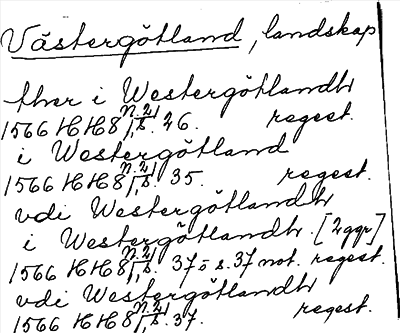 Västergötland, landskap
ther i Westergötlandh
1566 HH8 n.2/1, s. 26. regest.
i Westergötland
1566 HH8 n.2/1, s. 35. regest.
vdi Westergötlandh
i Westergötlandh. [2 ggr]
1566 HH8 n.2/1, s. 37 ö s. 37 not. regest.
vdi Westergötlandh
1566 HH8 n.2/1, s. 37. regest.